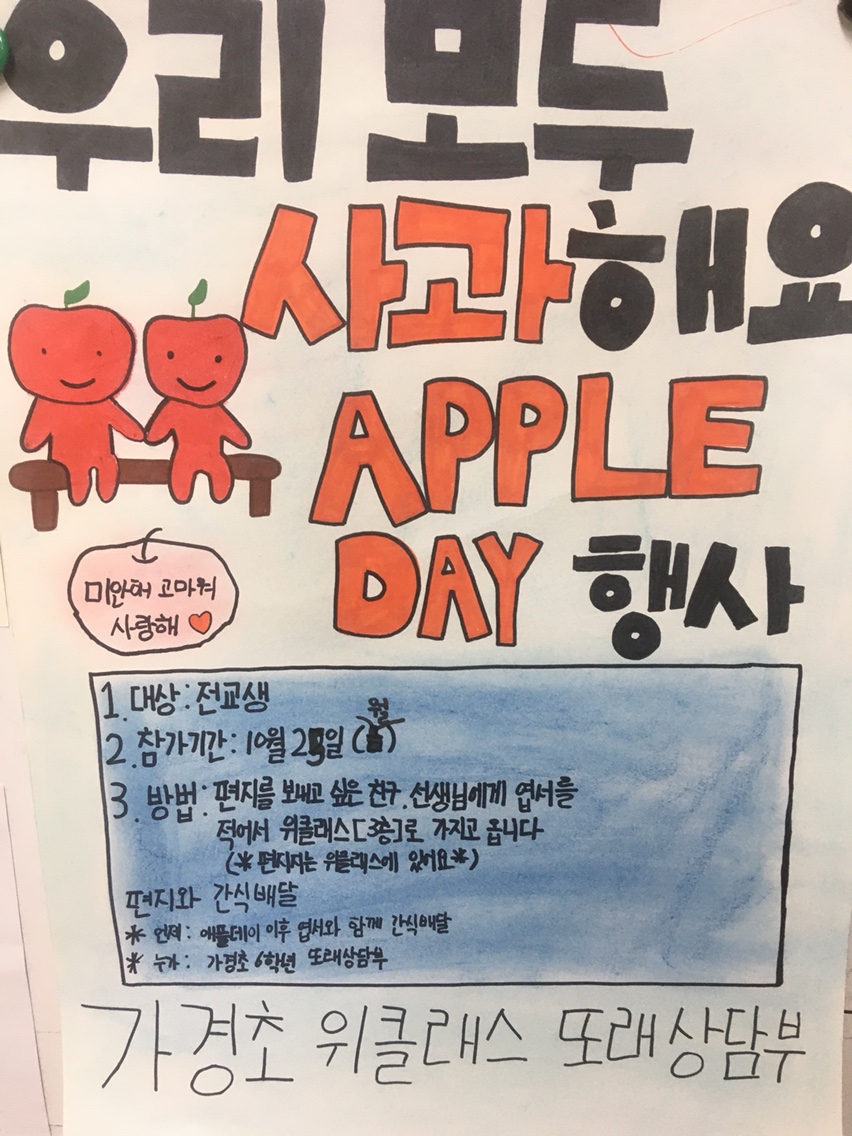 우리 모두
사과해요
APPLE
DAY 행사
미안해 고마워
사랑해
1. 대상 : 전교생
2. 참가기간 : 10월 25일 (월)
3. 방법 : 편지를 보내고 싶은 친구, 선생님에게 엽서를
적어서 위클래스[3층]로 가지고 옵니다
(* 편지지는 위클래스에 있어요 *)
편지와 간식배달
* 언제 : 애플데이 이후 엽서와 함께 간식배달
* 누가 : 가경초 6학년 또래상담부
가경초 위클래스 또래상담부